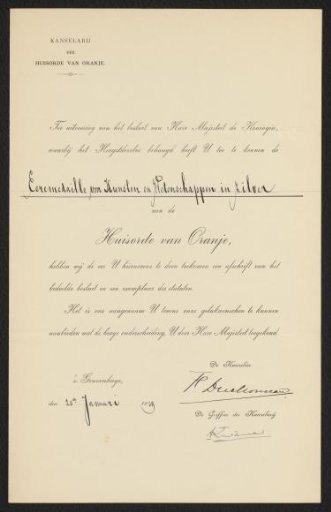 KANSELARIJ
DER
HUISORDE VAN ORANJE.
Ter uitvoering van het besluit van Hare Majesteit de Koningin,
waarbij het Hoogstdezelve behaagd heeft U toe te kennen de
Eeremedaille voor Kunsten en Wetenschappen in zilver
van de
Huisorde van Oranje,
hebben wij de eer U hiernevens te doen toekomen een afschrift van het
bedoelde besluit en een exemplaar der statuten.
Het is ons aangenaam U tevens onze gelukwenschen te kunnen
aanbieden met de hooge onderscheiding, U door Hare Majesteit toegekend.
De Kanselier
's Gravenhage,
den 20n Januari
De Griffier der Kanselarij